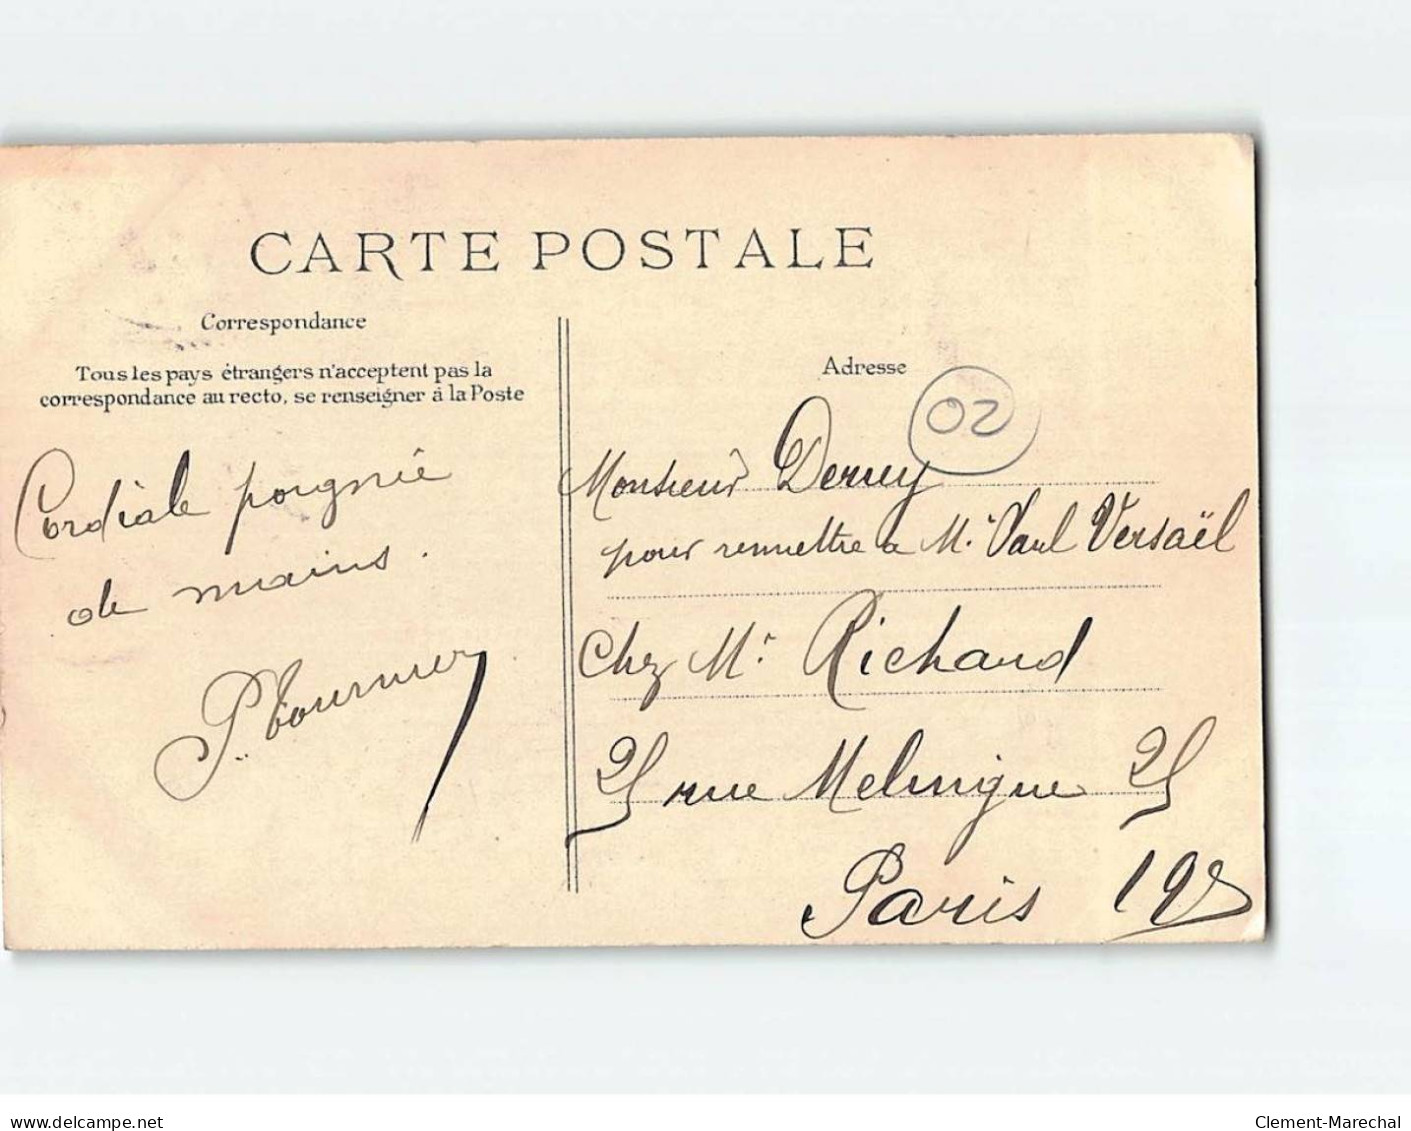 CARTE POSTALE
Correspondance
Tous les pays étrangers n'acceptent pas la
correspondance au recto, se renseigner à la Poste
Cordiale poignée
de mains.
P. Tournier
Adresse
02
Monsieur Deruey
pour remettre a Mr Paul Versaël
Chez Mr Richard
25 rue Melingue 25
Paris 19e
delcampe.net
Clement-Marechal